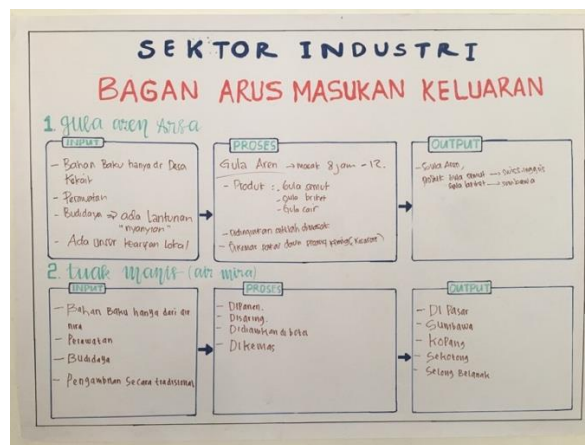 SEKTOR INDUSTRI
BAGAN ARUS MASUKAN KELUARAN
1. gula aren Arsa
INPUT
- Bahan Baku hanya dr Desa
Kekait
- Perawatan
- Budidaya → ada Lantunan
"nyanyian"
- Ada unsur kearifan lokal
PROSES
Gula Aren → masak 8 jam - 12.
- Produk : - Gula semut
- Gula briket
- Gula cair
- Dikemas
OUTPUT
- Gula Aren,
gula semut
Gula briket → sumbawa
2. tuak manis (air nira)
INPUT
- Bahan Baku hanya dari air
nira
- Perawatan
- Budidaya
- Pengambilan Secara tradisional
PROSES
- Dipanen.
- Disaring.
- Didiamkan di botol
- Dikemas
OUTPUT
- DI Pasar
- Sumbawa
- Kopang
- Sekotong
- Selong Belanak